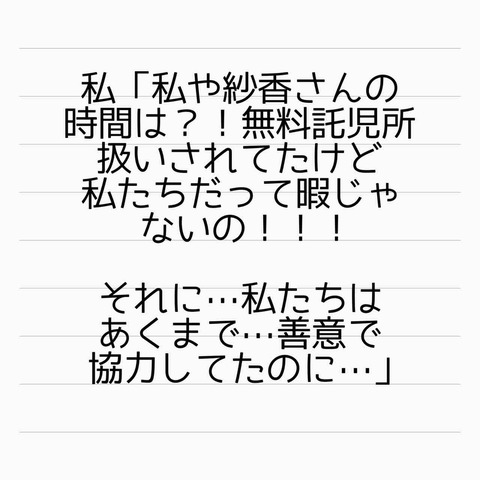 私「私や紗香さんの
時間は？！無料託児所
扱いされてたけど
私たちだって暇じゃ
ないの！！！
それに…私たちは
あくまで…善意で
協力してたのに…」